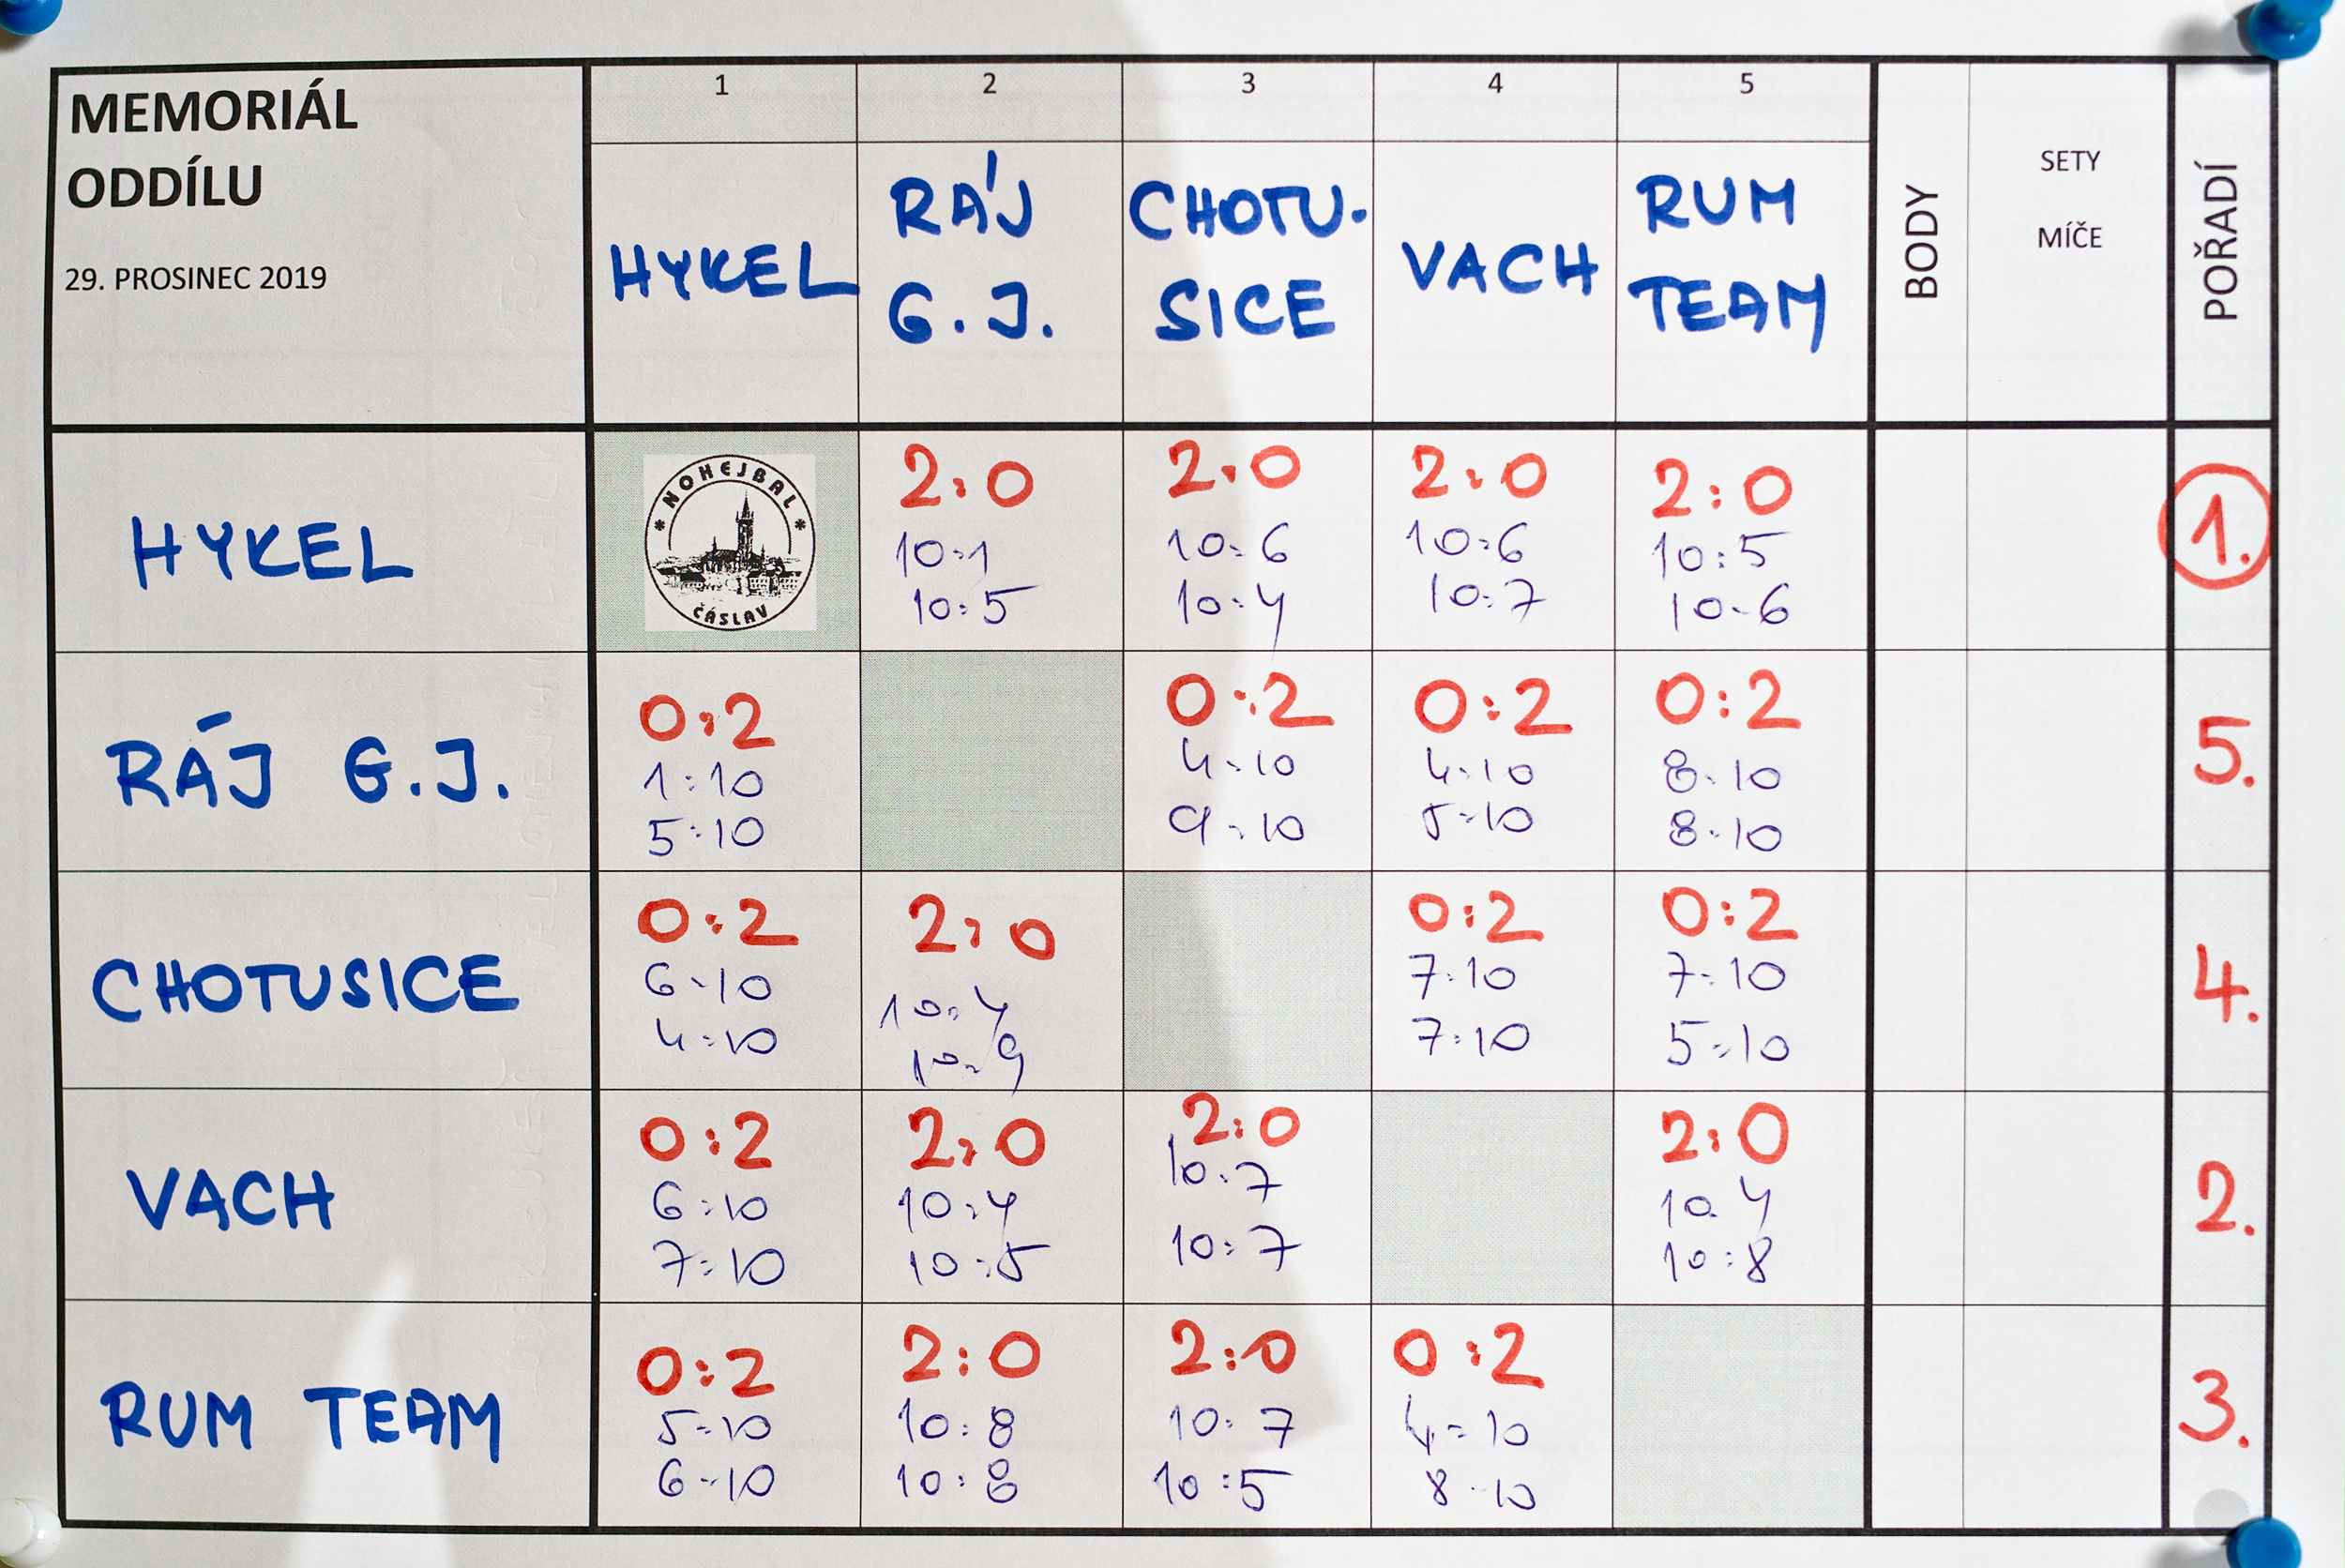 MEMORIÁL
ODDÍLU
29. PROSINEC 2019
1 2 3 4 5
HYKEL
RÁJ
G.J.
CHOTU-
SICE
VACH
RUM
TEAM
BODY
SETY
MÍČE
POŘADÍ
HYKEL
NOHEJBAL
ČÁSLAV
2:0 2:0 2:0 2:0
10:1 10:6 10:6 10:5
10:5 10:4 10:7 10:6
1.
RÁJ G.J.
0:2 0:2 0:2 0:2
1:10 4:10 4:10 8:10
5:10 9:10 5:10 8:10
5.
CHOTUSICE
0:2 2:0 0:2 0:2
6:10 10:4 7:10 7:10
4:10 10:9 7:10 5:10
4.
VACH
0:2 2:0 2:0 2:0
6:10 10:4 10:7 10:4
7:10 10:5 10:7 10:8
2.
RUM TEAM
0:2 2:0 2:0 0:2
5:10 10:8 10:7 4:10
6:10 10:8 10:5 8:10
3.